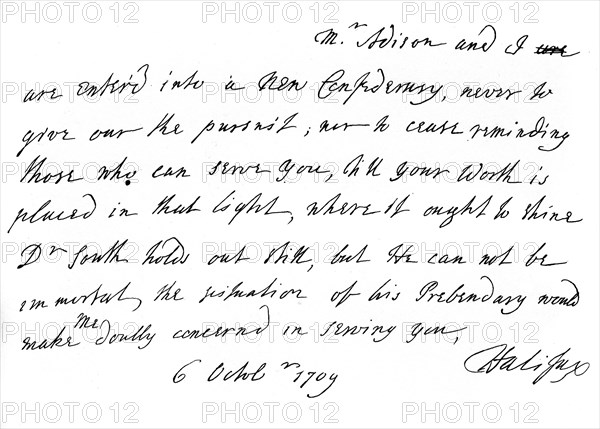 Mr. Adison and I are
are enter'd into a New Confederacy, never to
give over the pursuit; nor to cease reminding
those who can serve You, till your Worth is
placed in that light, where it ought to shine
Dr South holds out still, but He can not be
immortal, the situation of his Prebendary would
make me doubly concernd in serving you,
Halifax
6 Octobr 1709